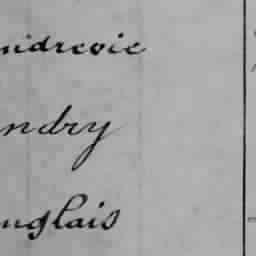 ndrevie
ndry
nglais